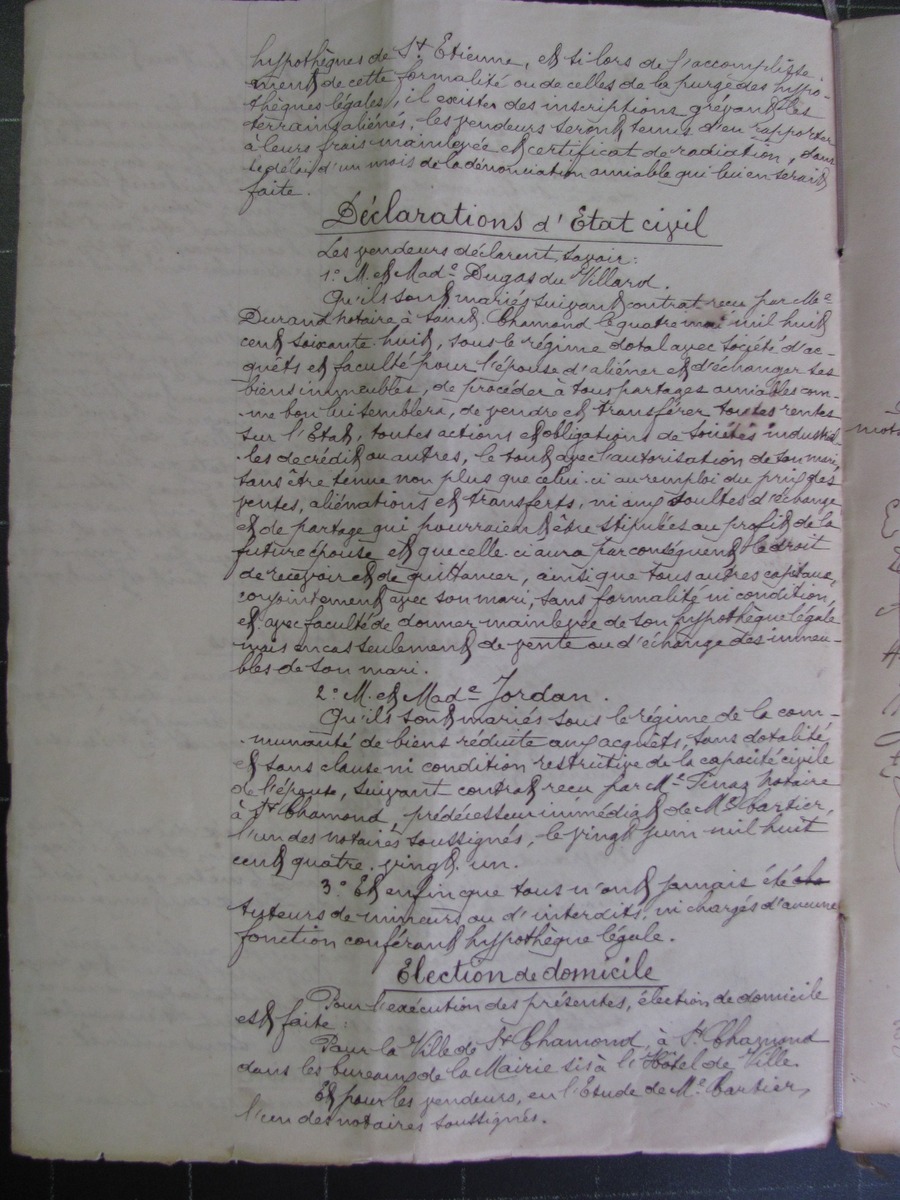 hypothèques de St Etienne, et si lors de l'accomplisse-
ment de cette formalité ou de celles de la purge des hypo-
thèques légales, il existe des inscriptions grevant les
terrains aliénés, les vendeurs seront tenus d'en rapporter
à leurs frais mainlevée et certificat de radiation, dans
le délai d'un mois de la dénonciation amiable qui leur en serait
faite.
Déclarations d'Etat civil
Les vendeurs déclarent, savoir:
1° M. et Made Dugas du Villard.
Qu'ils sont mariés suivant contrat reçu par Me
Durand notaire à Saint-Chamond le quatre mai mil huit
cent soixante-huit, sous le régime dotal avec société d'ac-
quêts et faculté pour l'épouse d'aliéner et d'échanger ses
biens immeubles, de procéder à tous partages amiables com-
-me bon lui semblera, de vendre et transférer toutes rentes
sur l'Etat, toutes actions et obligations de sociétés industriel
-les de crédit ou autres, le tout avec l'autorisation de son mari,
sans être tenue non plus que celui-ci au remploi du prix des
ventes, aliénations et transferts, ni aux soultes d'échange
et de partage qui pourraient être stipulées au profit de la
future épouse et que celle-ci aura par conséquent le droit
de recevoir et de quittancer, ainsi que tous autres capitaux,
conjointement avec son mari, sans formalité ni condition,
et avec faculté de donner mainlevée de son hypothèque légale
mais en cas seulement de vente ou d'échange des immeu-
bles de son mari.
2° M. et Made Jordan.
Qu'ils sont mariés sous le régime de la com-
-munauté de biens réduite aux acquêts, sans dotalité
et sans clause ni condition restrictive de la capacité civile
de l'épouse, suivant contrat reçu par Me Finaz notaire
à St Chamond, prédécesseur immédiat de Me Cartier,
l'un des notaires soussignés, le vingt juin mil huit
cent quatre-vingt-un.
3° Et enfin que tous n'ont jamais été
tuteurs de mineurs ou d'interdits, ni chargés d'aucune
fonction conférant hypothèque légale.
Election de domicile
Pour l'exécution des présentes, élection de domicile
est faite:
Pour la Ville de St Chamond, à St Chamond
dans les bureaux de la Mairie sis à l'Hôtel de Ville.
Et pour les vendeurs, en l'Etude de Me Cartier,
l'un des notaires soussignés.
mots